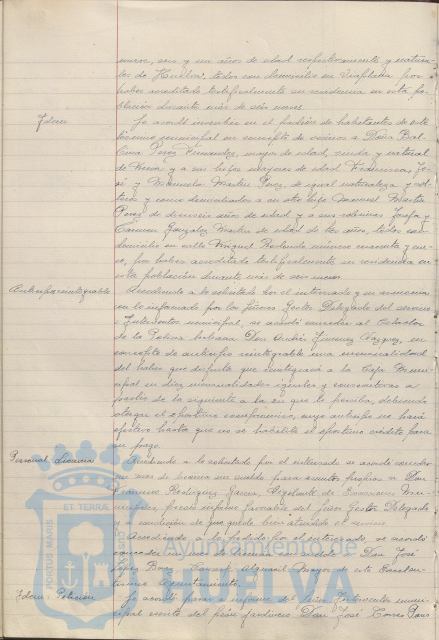 nueve, seis y un años de edad respectivamente y natura-
les de Huelva, todos con domicilio en
haber acreditado testificalmente su residencia en esta po-
blación durante más de seis meses.
Idem
Se acordó inscribir en el padrón de habitantes de este
término municipal en concepto de vecinos a Doña Bal-
bina Perez Fernandez, mayor de edad, viuda y natural
de Nerva y a sus hijos mayores de edad Francisca, Jo-
sé y Manuela Martin Perez, de igual naturaleza y sol-
teros y como domiciliados a su otro hijo Manuel Martin
Perez de dieciseis años de edad y a sus sobrinas Josefa y
Carmen Gonzalez Martin de edad de tres años, todos con
domicilio en calle Miguel Redondo número cincuenta y cin-
co, por haber acreditado testificalmente su residencia en
esta población durante más de seis meses.
Anticipo reintegrable
Accediendo a lo solicitado por el interesado y en armonía
con lo informado por los Señores Gestor Delegado del servicio
e Interventor municipal, se acordó conceder al Celador
de la Policía urbana Don Andrés Jimenez Vazquez, en
concepto de anticipo reintegrable una mensualidad
del haber que disfruta que reintegrará a la Caja Muni-
cipal en diez mensualidades iguales y consecutivas a
partir de la siguiente a la en que lo perciba, debiendo
otorgar el oportuno compromiso, cuyo anticipo no hará
efectivo hasta que no se habilite el oportuno crédito para
su pago.
Personal. Licencia
Accediendo a lo solicitado por el interesado se acordó conceder
un mes de licencia sin sueldo para asuntos propios a Don
Francisco Rodriguez Garcia,
previo informe favorable del Señor Gestor Delegado
y a condición de que quede bien atendido el servicio.
Accediendo a lo pedido por el interesado, se acordó
conceder Don José
Lopez Alguacil Mayor de este Excelen-
tísimo Ayuntamiento.
Idem: Peticion
Se acordó pasar a informe del Señor Interventor muni-
cipal escrito del Señor Jardinero Don José Torres
PORTUS MARIS
ET TERRAE
CUSTODIA
Ayuntamiento de
HUELVA